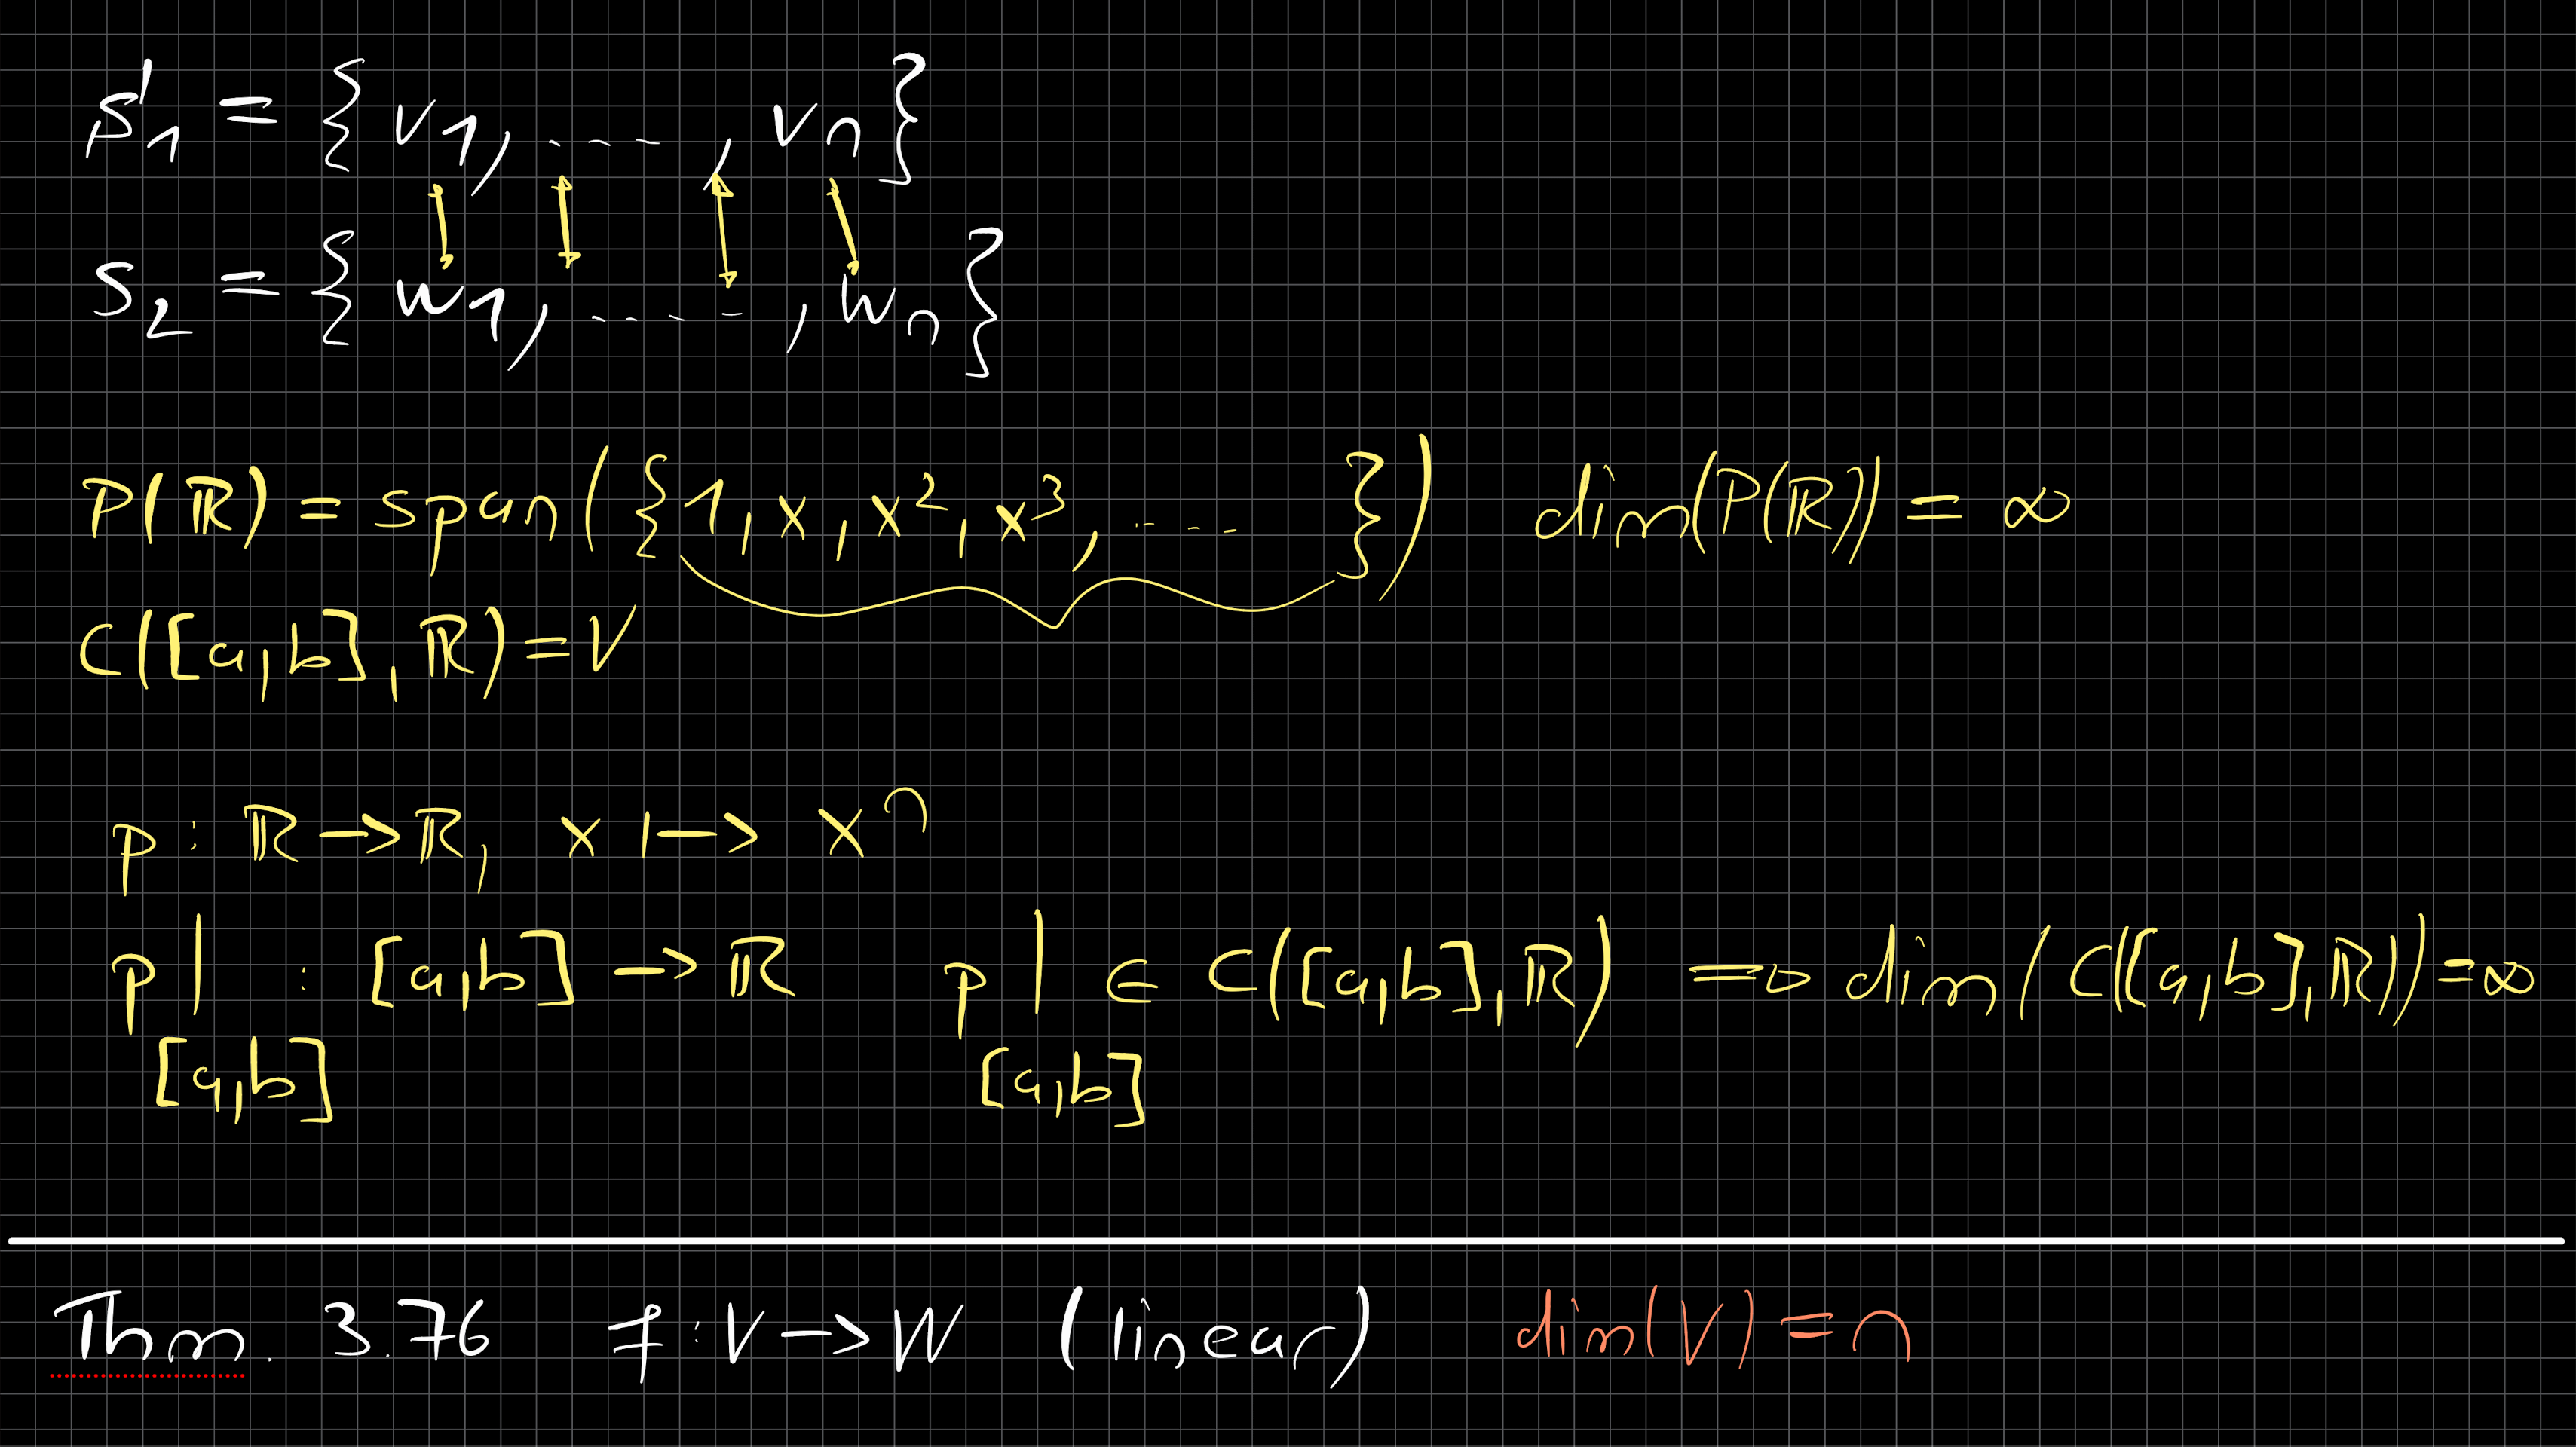 S'₁ = { v₁, ...., vₙ }
S₂ = { w₁, ....., wₙ }
P(ℝ) = span({1, x, x², x³, .... }) dim(P(ℝ)) = ∞
C([a,b], ℝ) = V
p : ℝ → ℝ, x ↦ xⁿ
p| : [a,b] → ℝ p| ∈ C([a,b], ℝ) ⇒ dim(C([a,b], ℝ)) = ∞
[a,b] [a,b]
Thm. 3.76 f : V → W (linear) dim(V) = n